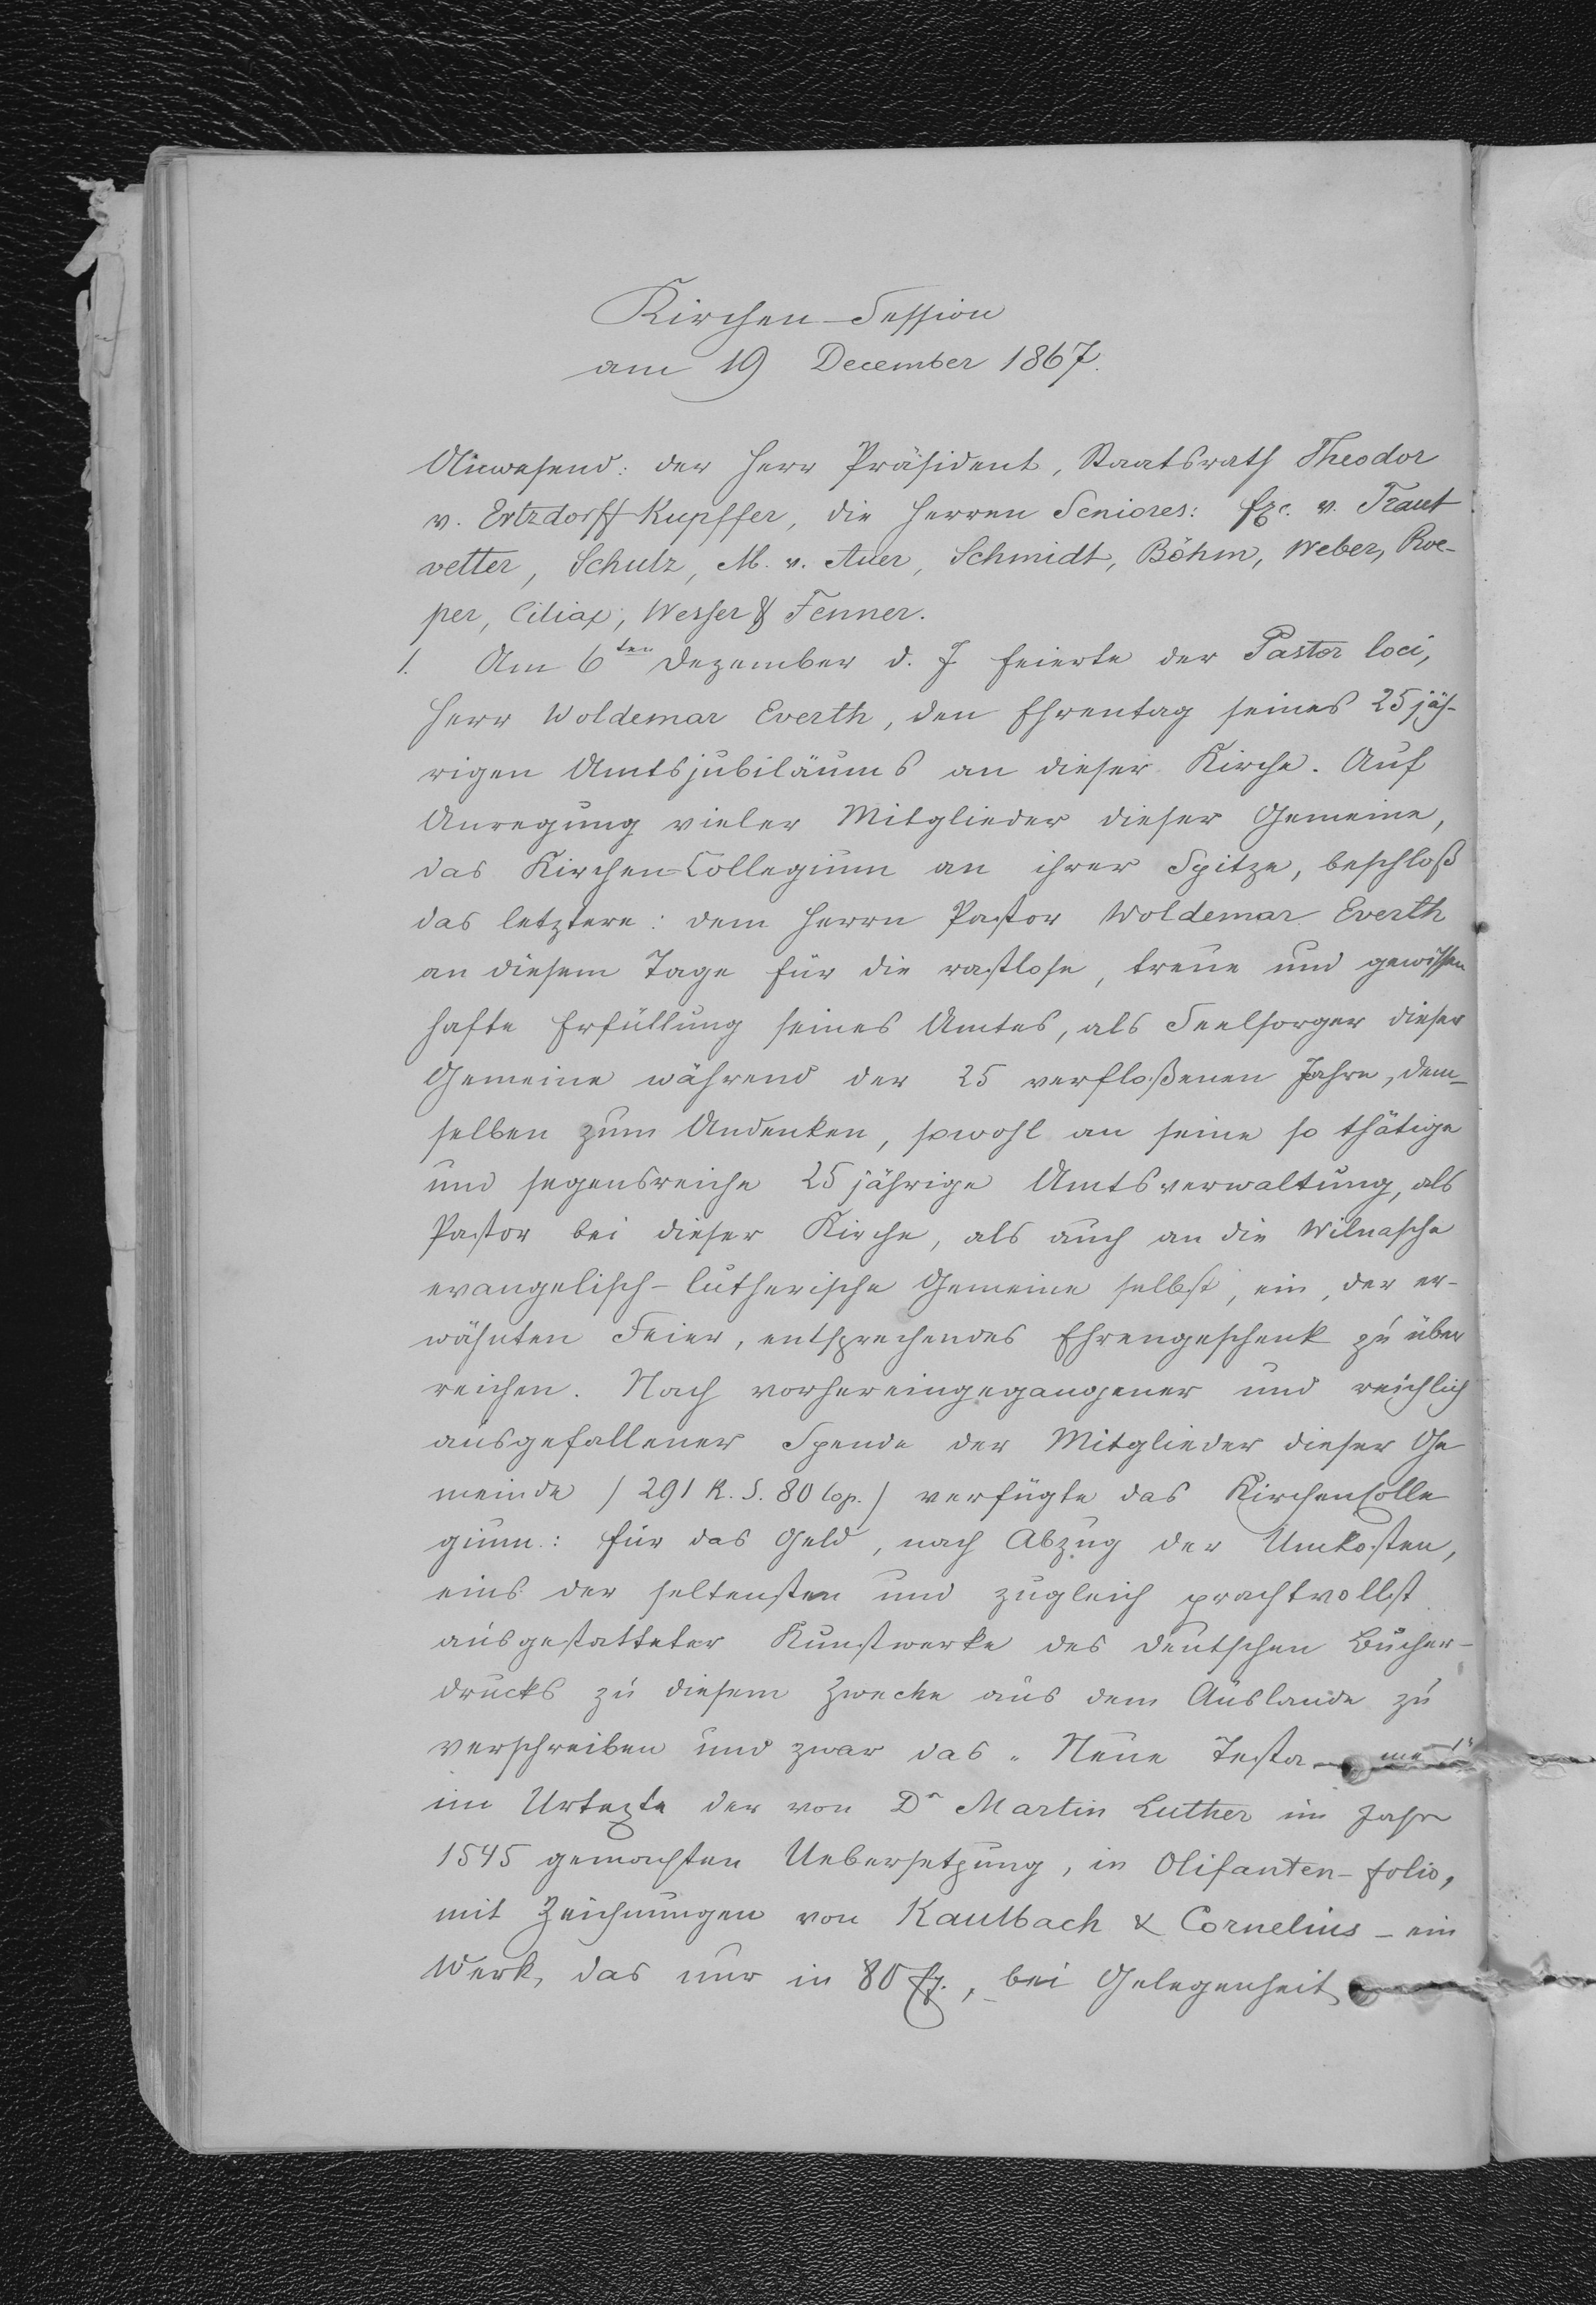 Kirchen-Session
am 19 December 1867.
Anwesend: der Herr Präsident, Staatsrath Theodor
v. Ertzdorff-Kupffer, die Herren Seniores: Exc. v. Traut
vetter, Schulz, M. v. Auer, Schmidt, Böhm, Weber, Roe-
per, Ciliax, Wesser & Fenner.
1. Am 6ten Dezember d. J. feierte der Pastor loci,
Herr Woldemar Everth, den Ehrentag seines 25 jäh-
rigen Amtsjubiläums an dieser Kirche. Auf
Anregung vieler Mitglieder dieser Gemeine,
das Kirchen-Collegium an ihrer Spitze, beschloß
das letztere: dem Herrn Pastor Woldemar Everth
an diesem Tage für die rastlose, treue und gewissen
hafte Erfüllung seines Amtes, als Seelsorger dieser
Gemeine während der 25 verfloßenen Jahre, dem-
selben zum Andenken, sowohl an seine so thätige
und segensreiche 25 jährige Amtsverwaltung, als
Pastor bei dieser Kirche, als auch an die Wilnasche
evangelisch-lutherische Gemeine selbst, ein, der er-
wähnten Feier, entsprechendes Ehrengeschenk zu über
reichen. Nach vorhereingegangener und reichlich
ausgefallener Spende der Mitglieder dieser Ge
meinde /291 R. S. 80 Cop./ verfügte das KirchenColle
gium: für das Geld, nach Abzug der Unkosten,
eins der seltensten und zugleich prachtvollst
ausgestatteter Kunstwerke des deutschen Bücher-
drucks zu diesem Zwecke aus dem Auslande zu
verschreiben und zwar das „Neue Testa-me
im Urtexte der von Dr Martin Luther im Jahre
1545 gemachten Uebersetzung, in Olifanten-folio,
mit Zeichnungen von Kaulbach & Cornelius - ein
Werk, das nur in 80 Ex., bei Gelegenheit